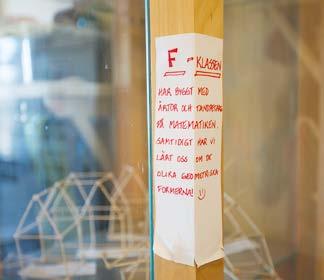 F-KLASSEN
HAR BYGGT MED
ÄRTOR OCH TANDPETARE
PÅ MATEMATIKEN.
SAMTIDIGT HAR VI
LÄRT OSS OM DE
OLIKA GEOMETRISKA
FORMERNA! :)